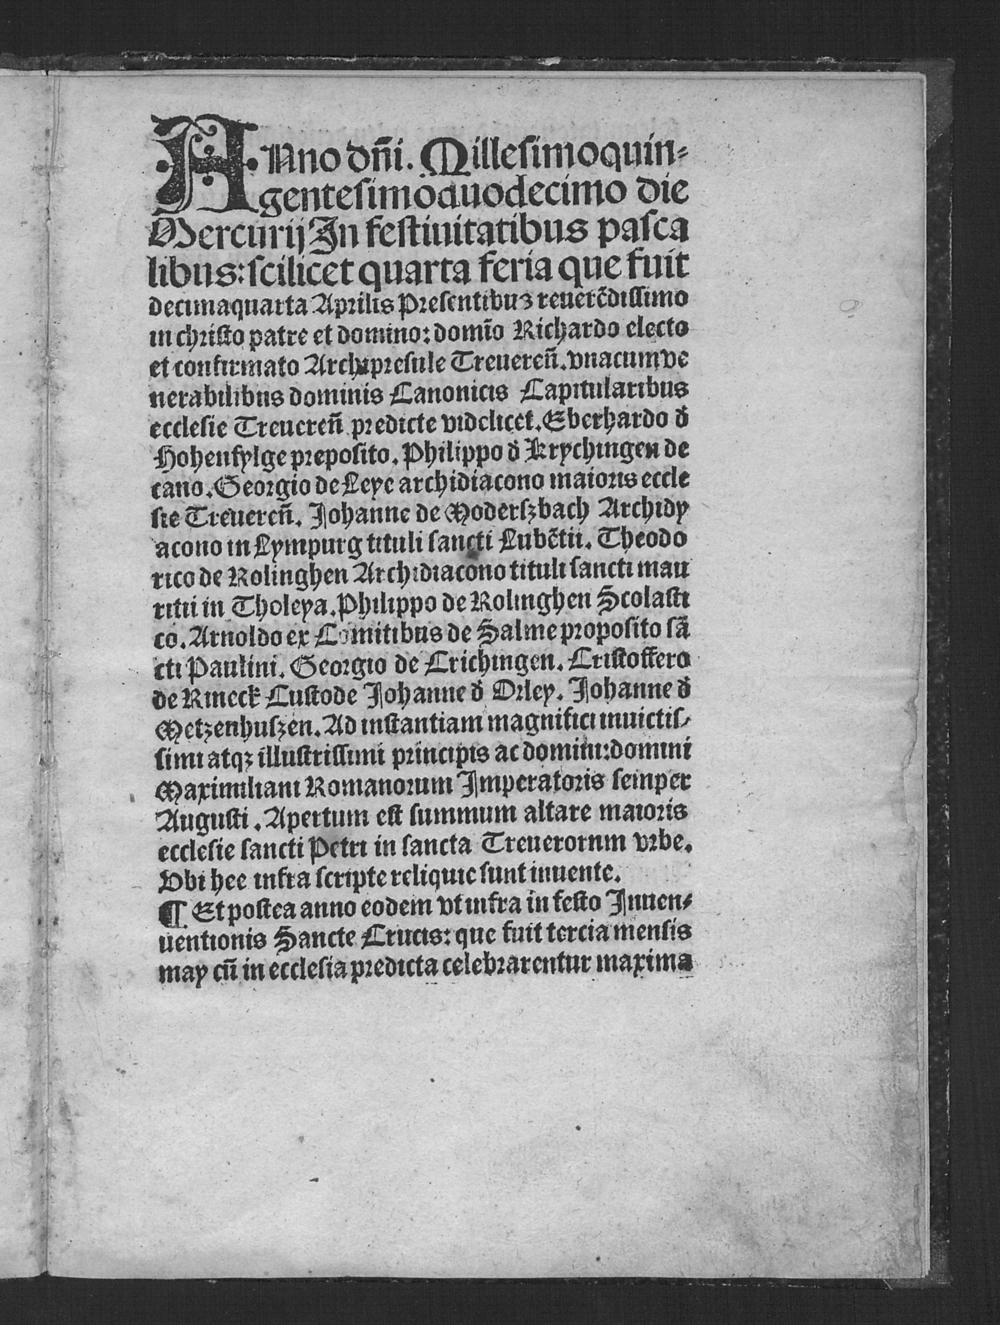 ANno dñi. Millesimoquin⸗
gentesimoduodecimo die
Mercurij In festiuitatibus pasca
libus: scilicet quarta feria que fuit
decimaquarta Aprilis Presentibuz reuerēdissimo
in christo patre et domino: domīo Richardo electo
et confirmato Archipresule Treuereñ. vnacumve
nerabilibus dominis Canonicis Capitularibus
ecclesie Treuereñ predicte videlicet. Eberhardo đ
Hohenfylge preposito. Philippo đ Krychingen de
cano. Georgio de Leye archidiacono maioris eccle
sie Treuereñ. Johanne de Moderszbach Archidy
acono in Lympurg tituli sancti Lubētii. Theodo
rico de Rolinghen Archidiacono tituli sancti mau
ritii in Tholeya. Philippo de Rolinghen Scolasti
co. Arnoldo ex Comitibus de Salme proposito sā
cti Paulini. Georgio de Crichingen. Cristoffero
de Rineck Custode Johanne đ Orley. Johanne đ
Metzenhuszen. Ad instantiam magnifici inuictis⸗
simi atqz illustrissimi principis ac domini: domini
Maximiliani Romanorum Imperatoris semper
Augusti. Apertum est summum altare maioris
ecclesie sancti Petri in sancta Treuerornm vrbe.
Vbi hee infra scripte reliquie sunt inuente.
¶ Et postea anno eodem vt infra in festo Inuen⸗
uentionis Sancte Crucis: que fuit tercia mensis
may cū in ecclesia predicta celebrarentur maxima